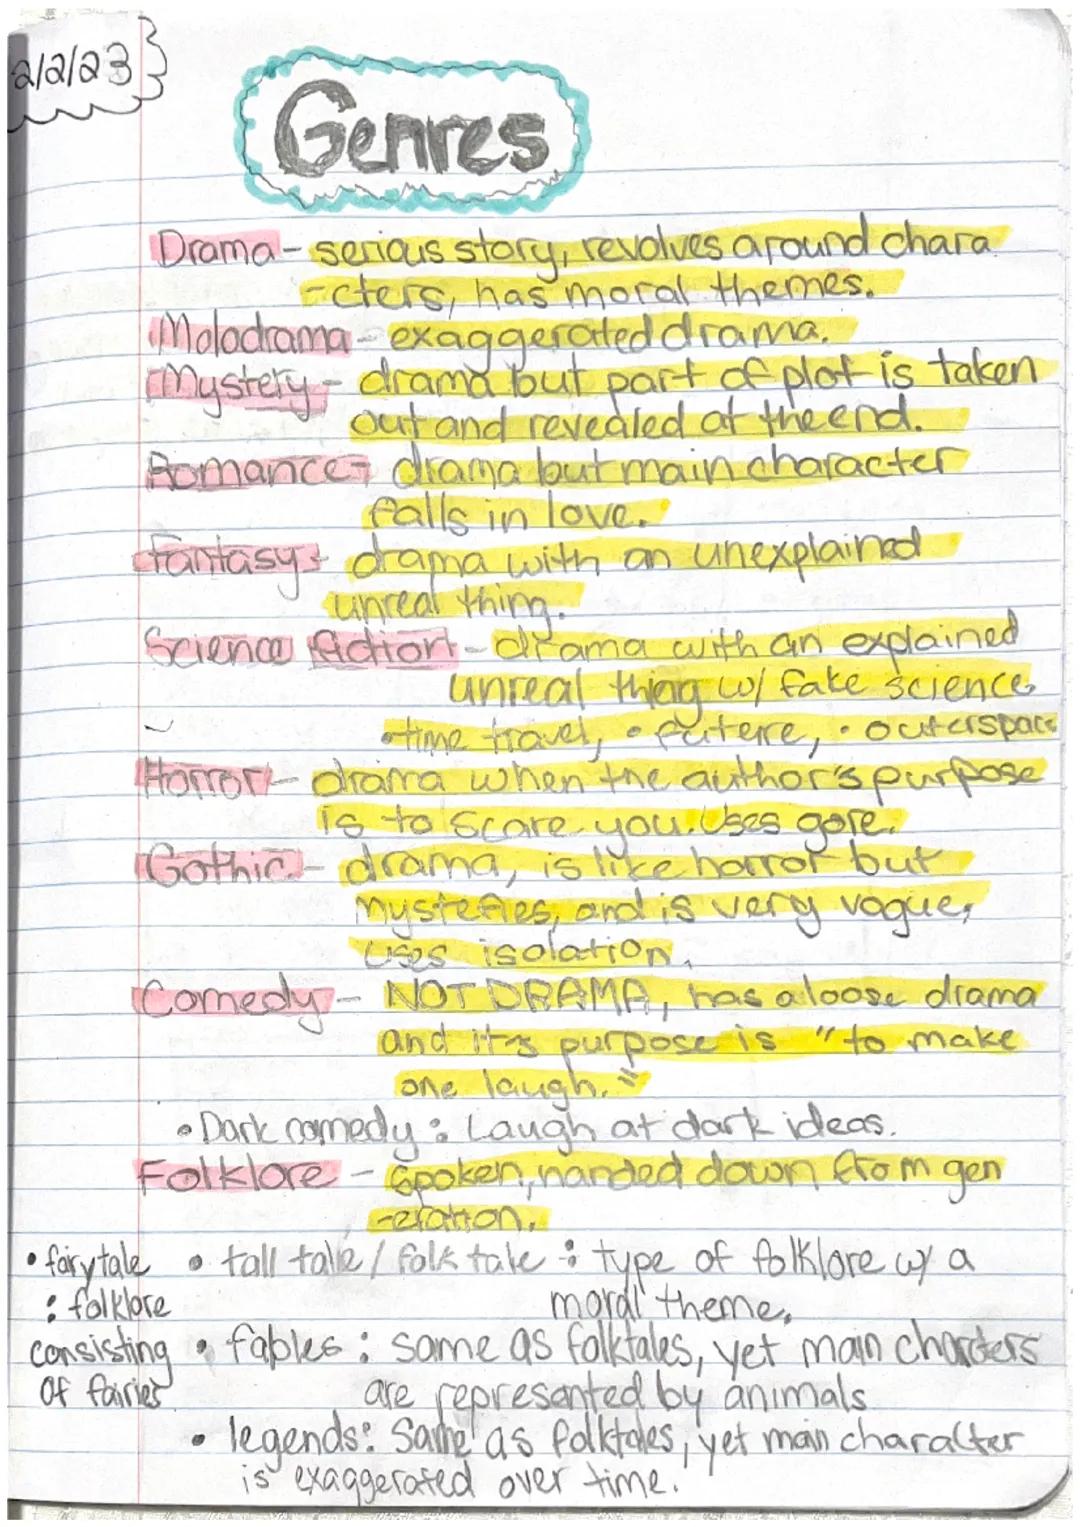 2/2/23
Genres
Drama - serious story, revolves around chara
-cters, has moral themes.
Molodrama - exaggerated drama.
Mystery - drama but part of plot is taken
out and revealed at the end.
Romance - drama but main character
falls in love.
Fantasy - drama with an unexplained
unreal thing.
Science fiction - drama with an explained
unreal thing w/ fake science
•time travel, • futere, • outerspace
Horror - drama when the author's purpose
is to scare you. Uses gore.
Gothic - drama, is like horror but
mysteries, and is very vague,
uses isolation.
Comedy - NOT DRAMA, has a loose drama
and it's purpose is "to make
one laugh."
• Dark comedy : Laugh at dark ideas.
Folklore - spoken, handed down from gen
-eration.
• fairytale
: folklore
consisting
of fairies
• tall tale / folk tale : type of folklore w/ a
moral theme.
• fables : same as folktales, yet main charcters
are represented by animals
• legends: Same as folktales, yet main character
is exaggerated over time.